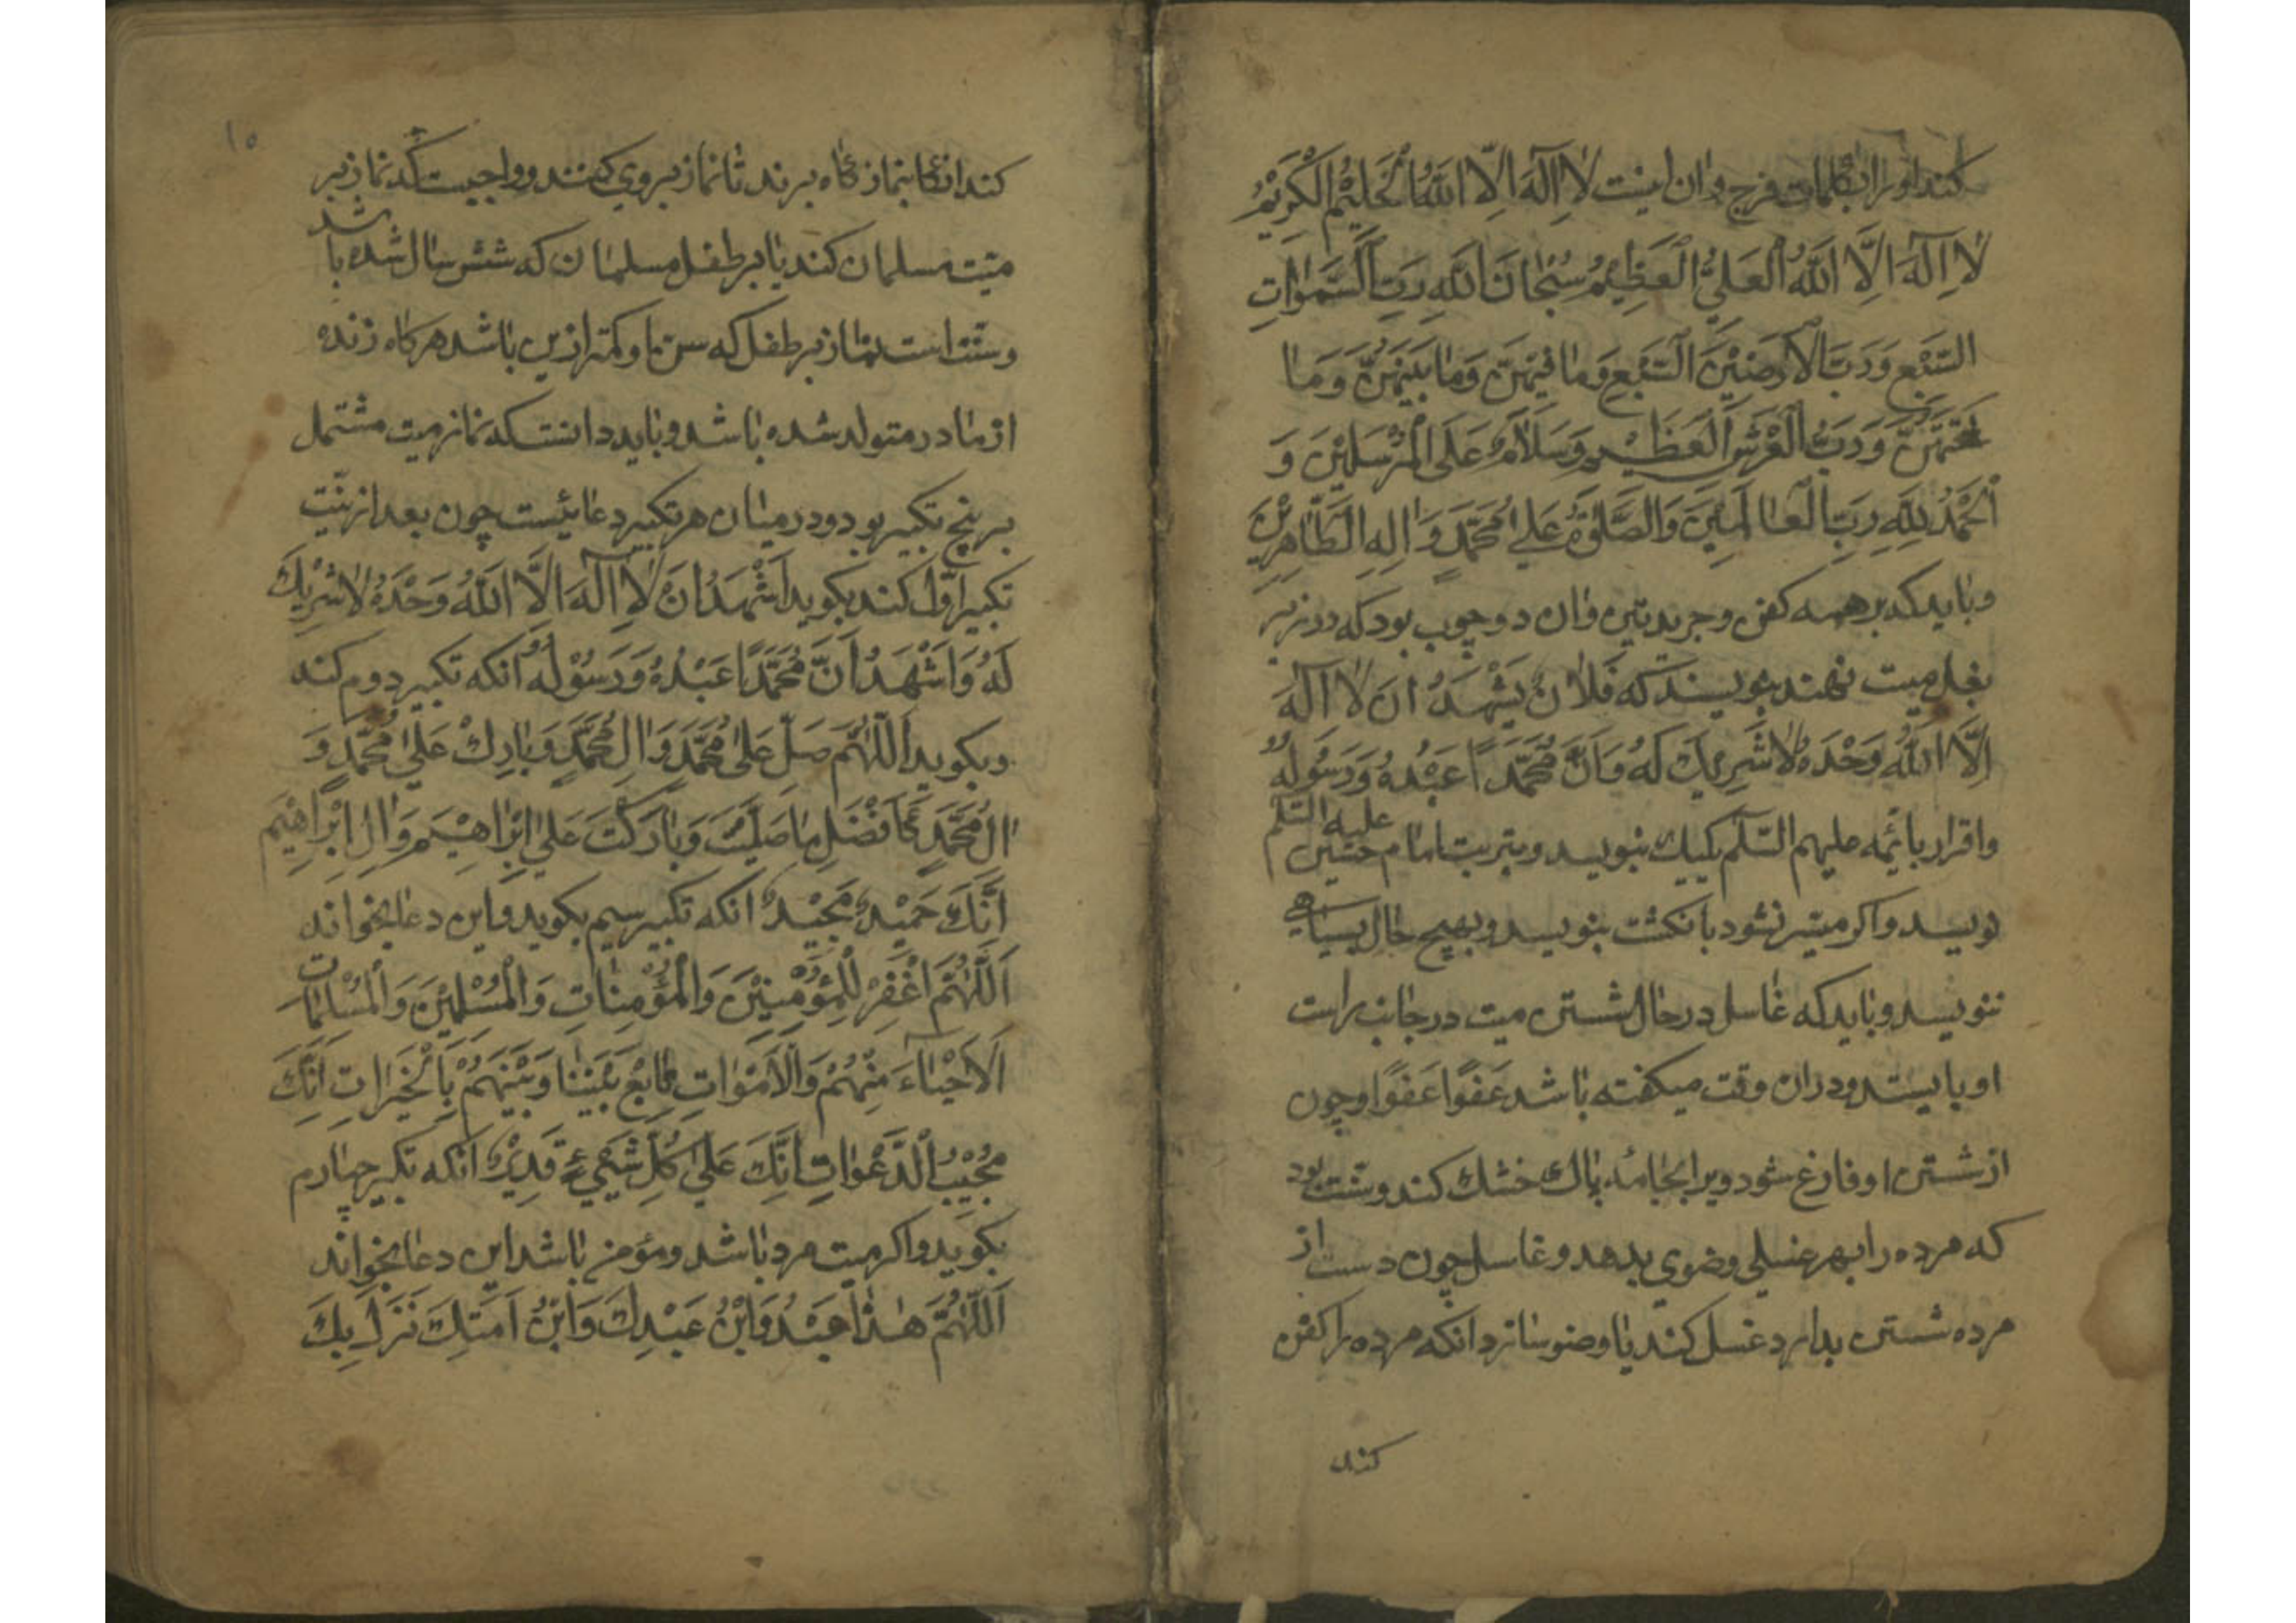 کنند او را بکلمات فرج و ان اینست لَا اِلٰهَ اِلَّا اللّٰهُ الْحَلِیْمُ الْکَرِیْمُ
لَا اِلٰهَ اِلَّا اللّٰهُ الْعَلِیُّ الْعَظِیْمُ سُبْحَانَ اللّٰهِ رَبِّ السَّمٰوَاتِ
السَّبْعِ وَرَبِّ الْاَرَضِیْنَ السَّبْعِ وَمَا فِیْهِنَّ وَمَا بَیْنَهُنَّ وَمَا
تَحْتَهُنَّ وَرَبِّ الْعَرْشِ الْعَظِیْمِ وَسَلَامٌ عَلَی الْمُرْسَلِیْنَ وَ
الْحَمْدُ لِلّٰهِ رَبِّ الْعَالَمِیْنَ وَالصَّلٰوةُ عَلٰی مُحَمَّدٍ وَاٰلِهِ الطَّاهِرِیْنَ
و باید که بر همه کفن و جریدتین و ان دو چوب بود که در زیر
بغل میت نهند بنویسند که فَلَانٌ یَشْهَدُ اَنْ لَا اِلٰهَ
اِلَّا اللّٰهُ وَحْدَهُ لَا شَرِیْكَ لَهُ وَاَنَّ مُحَمَّدًا عَبْدُهُ وَرَسُوْلُهُ
و اقرار بائمه علیهم السّلم یکیك بنویسد و بتربت امام حسین علیه السّلم
نویسد و اکر میسر نشود بانکشت بنویسد و بهیچ حال بسیاهی
ننویسد و باید که غاسل در حال شستن میت در جانب راست
او بایستد و دران وقت میکفته باشد عَفْوًا عَفْوًا و چون
از شستن او فارغ شود ویرا بجامهٔ پاك خشك کند و سنت بود
که مرده را بهر غسلی وضوی بدهد و غاسل چون دست از
مرده شستن بدارد غسل کند یا وضو سازد انکه مرده را کفن
کند
١٥
کند انکاه بنماز کاه برند تا نماز بروی کنند و واجبست که نماز بر
میّت مسلمان کند یا بر طفل مسلمانان که شش سال شده باشد
و سنت است نماز بر طفل که سن او کمتر ازین باشد هرکاه زنده
از مادر متولد شده باشد و باید دانست که نماز میت مشتمل
بر پنج تکبیر بود و در میان هر تکبیر دعائیست چون بعد از نیّت
تکبیر اوّل کند بکوید اَشْهَدُ اَنْ لَا اِلٰهَ اِلَّا اللّٰهُ وَحْدَهُ لَا شَرِیْكَ
لَهُ وَاَشْهَدُ اَنَّ مُحَمَّدًا عَبْدُهُ وَرَسُوْلُهُ انکه تکبیر دوم کند
و بکوید اَللّٰهُمَّ صَلِّ عَلٰی مُحَمَّدٍ وَاٰلِ مُحَمَّدٍ وَبَارِكْ عَلٰی مُحَمَّدٍ وَ
اٰلِ مُحَمَّدٍ کَاَفْضَلِ مَا صَلَّیْتَ وَبَارَکْتَ عَلٰی اِبْرَاهِیْمَ وَاٰلِ اِبْرَاهِیْمَ
اِنَّكَ حَمِیْدٌ مَجِیْدٌ انکه تکبیر سیم بکوید و این دعا بخواند
اَللّٰهُمَّ اغْفِرْ لِلْمُؤْمِنِیْنَ وَالْمُؤْمِنَاتِ وَالْمُسْلِمِیْنَ وَالْمُسْلِمَاتِ
اَلْاَحْیَاءَ مِنْهُمْ وَالْاَمْوَاتِ تَابِعْ بَیْنَنَا وَبَیْنَهُمْ بِالْخَیْرَاتِ اِنَّكَ
مُجِیْبُ الدَّعَوَاتِ اِنَّكَ عَلٰی کُلِّ شَیْیءٍ قَدِیْرٌ انکه تکبیر چهارم
بکوید و اکر میت مرد باشد و مؤمن باشد این دعا بخواند
اَللّٰهُمَّ هٰذَا عَبْدُ وَابْنُ عَبْدِكَ وَابْنُ اَمَتِكَ نَزَلَ بِكَ